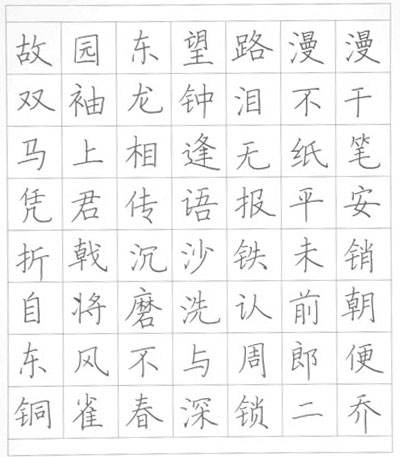 故园东望路漫漫
双袖龙钟泪不干
马上相逢无纸笔
凭君传语报平安
折戟沉沙铁未销
自将磨洗认前朝
东风不与周郎便
铜雀春深锁二乔